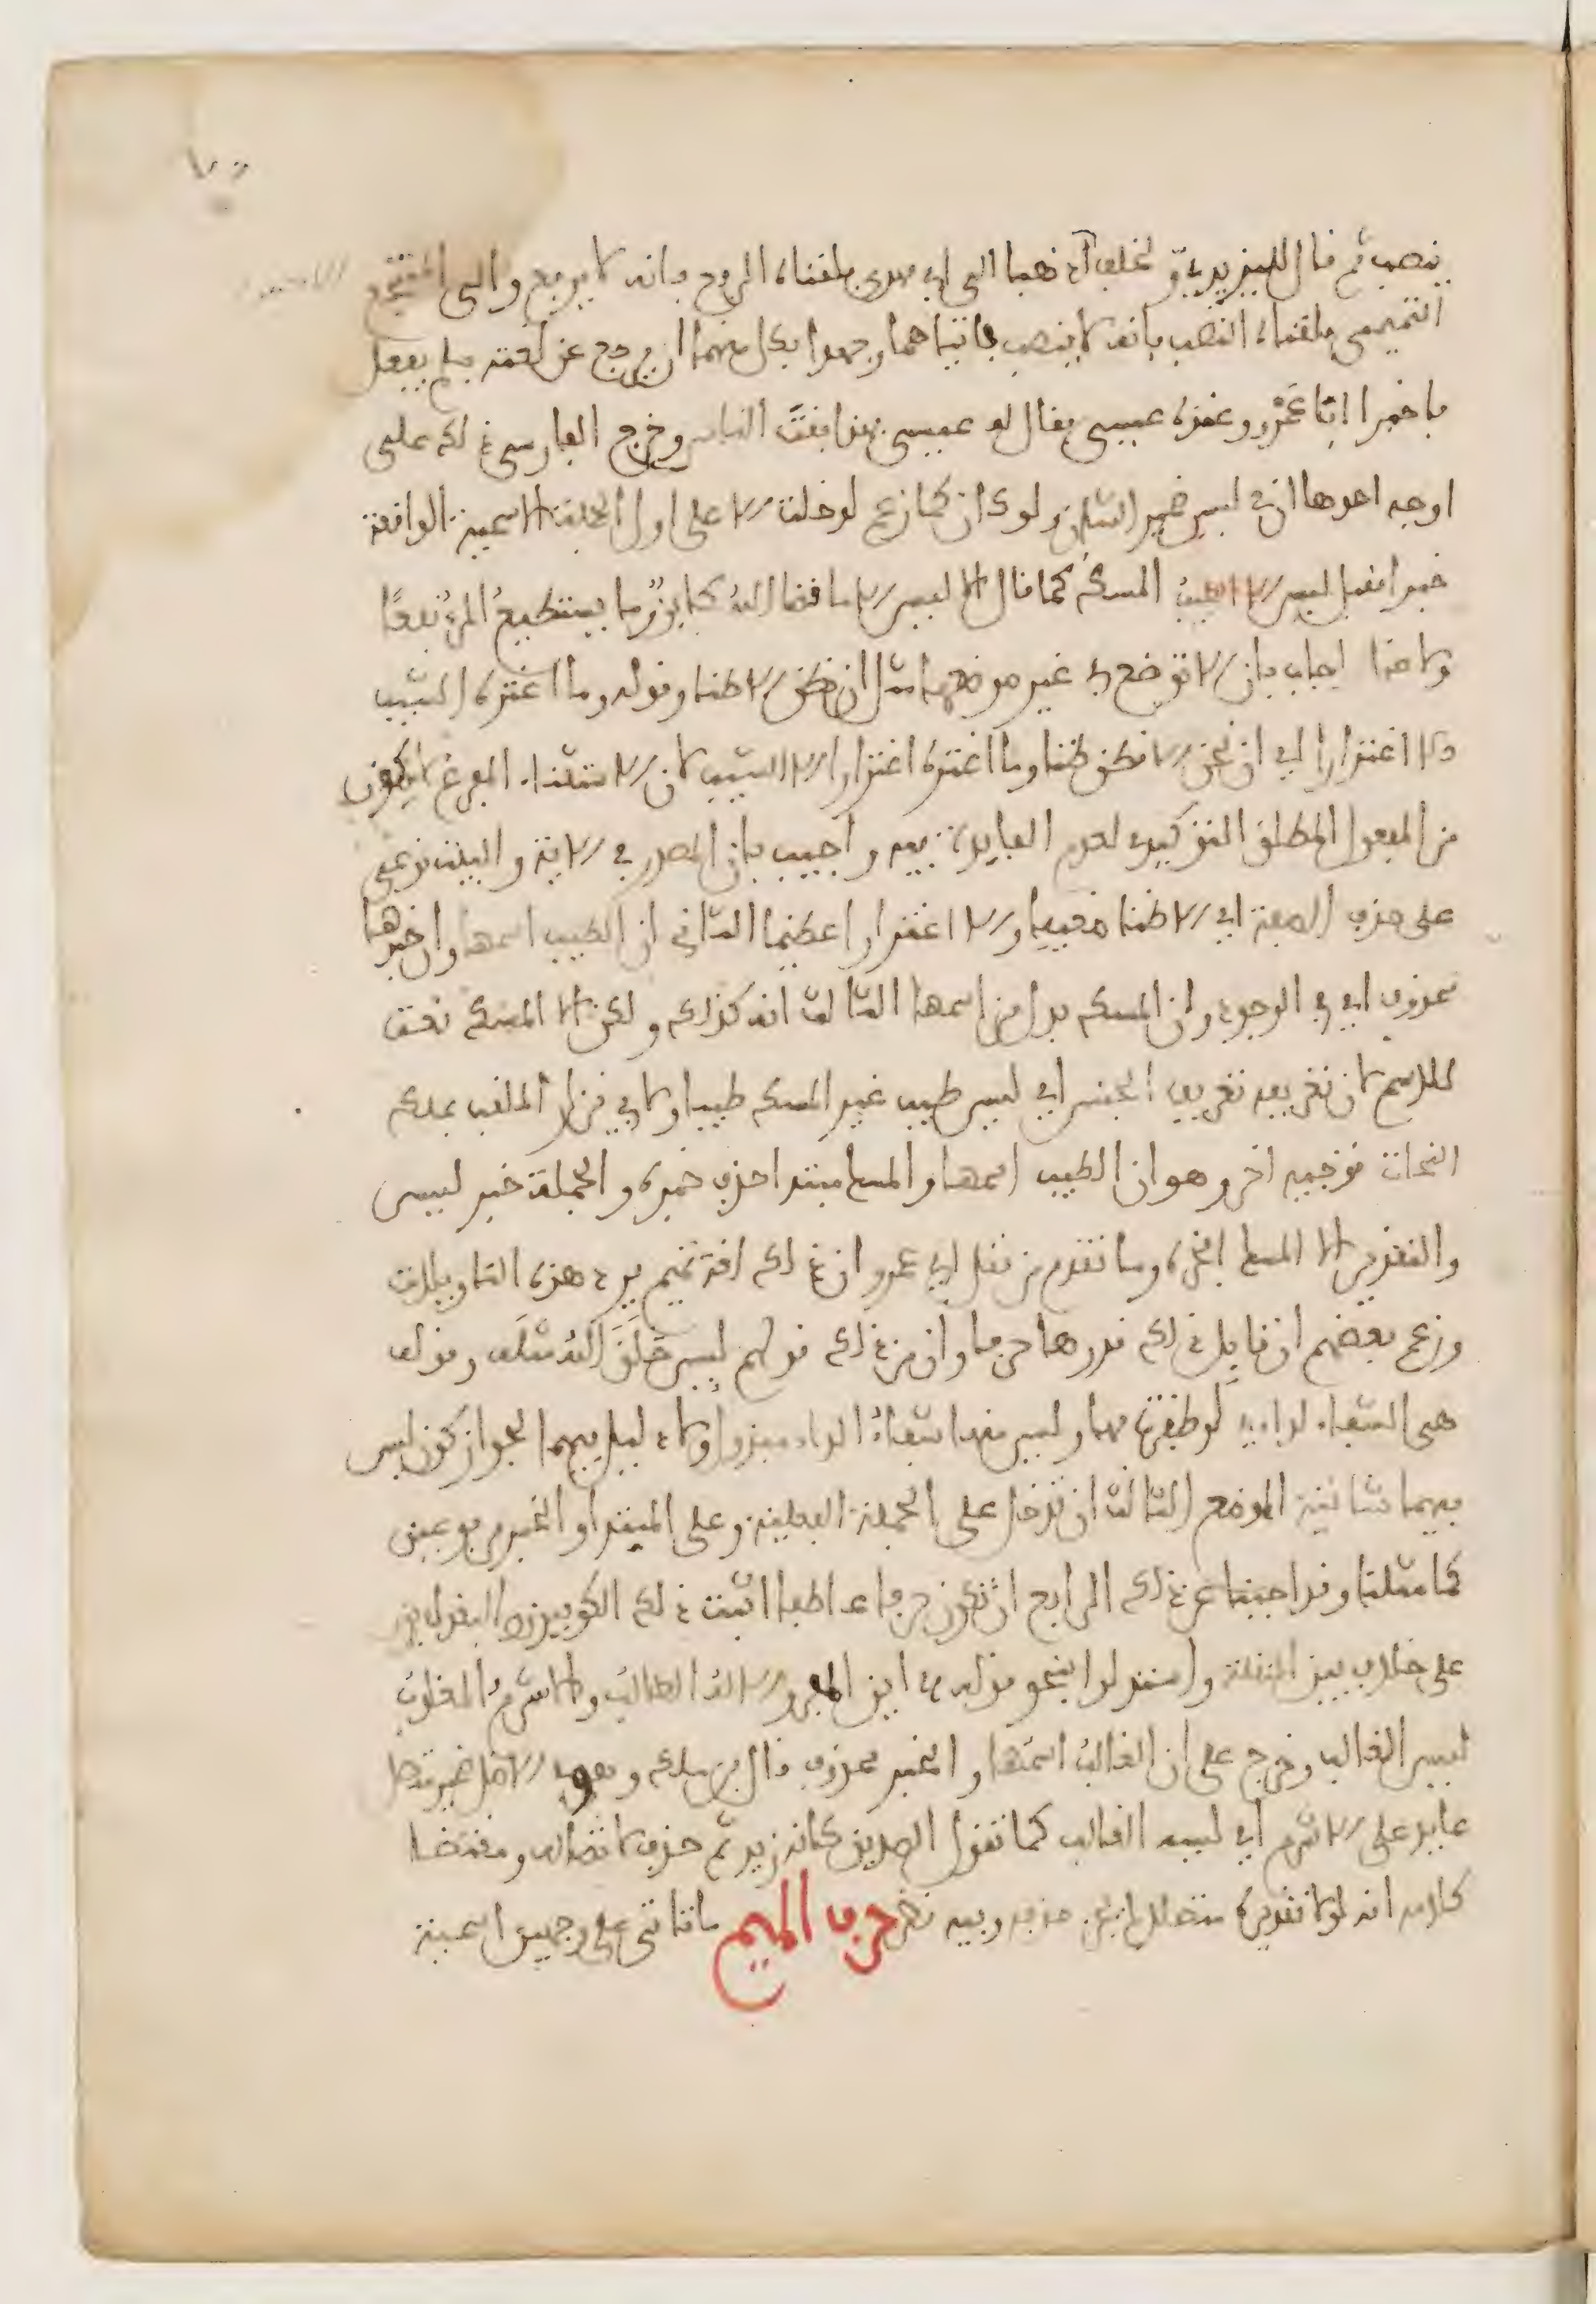 ينصب ثم قال لليزيدي ولخلف اذهبا الى ابي مهدي فلقناه الرفع فانه لا يرفع والى المنتجع
التميمي فلقناه النصب فانه لا ينصب فاتياهما وجهدا بكل منهما ان يرجع عن لغته فلم يفعل
فاخبرا ابا عَمْرو وعنده عيسى فقال له عيسى بهذا فقتَ الناس وخرج الفارسي ذلك على
اوجه احدها ان في ليس ضمير الشان ولو كان كما زعم لدخلت الا على اول الجملة الاسمية الواقعة
خبرا فقيل ليس الا الطيبُ المسكُ كما قال الا ليس الا ما قضا اللهُ كاينٌ وما يستطيعُ المرءُ نفعًا
ولا ضرا اجاب بان الا توضع في غير موضعها مثل ان نظن الا ظنا وقوله وما اغتره الشيب
الا اغترارا اي ان نحن الا نظن ظنا وما اغتره اغترارا الا الشيب لان الاستثناء المفرغ لا يكون
من المفعول المطلق التوكيدي لعدم الفايدة فيه واجيب بان المصدر في الاية والبيت نوعي
على حذف الصفة اي الا ظنا ضعيفا والا اغترارا عظيما الثاني ان الطيب اسمها وان خبرها
محذوف اي في الوجود وان المسك بدل من اسمها الثالث انه كذلك ولكن الا المسك نعت
للاسم لان تعريفه تعريف الجنس اي ليس طيب غير المسك طيبا ولابي نزار الملقب بملك
النحاة توجيه اخر وهو ان الطيب اسمها والمسك مبتدا حذف خبره والجملة خبر ليس
والتقدير الا المسك افخره وما تقدم من نقل ابي عمرو ان ذلك لغة تميم يرد هذه التاويلات
وزعم بعضهم ان قايل ذلك قدرها حرفا وان من ذلك قولهم ليس خَلَقَ اللهُ مثلَه وقوله
هي الشفاء لدايي لو ظفرت بها وليس منها شفاءُ الداء مبذولُ ولا دليل فيهما لجواز كون ليس
فيهما شانية الموضع الثالث ان تدخل على الجملة الفعلية وعلى المبتدا والخبر مرفوعين
كما مثلنا وقد اجبنا عن ذلك الرابع ان تكون حرفا عاطفا اثبت ذلك الكوفيون او البغداديون
على خلاف بين النقلة واستدلوا بنحو قوله اين المفر والالهُ الطالبُ والاشرمُ المغلوبُ
ليس الغالب وخرج على ان الغالبُ اسمُها والخبر محذوف قال بن ملك وهو في الاصل ضمير متصل
عايد على الاشرم اي ليسه الغالب كما تقول الصديق كانه زيد ثم حذف لاتصاله ومقتضا
كلامه انه لولا تقديره متصلا لم يجز حذفه وفيه نظر حرف الميم ما تاتي على وجهين اسمية